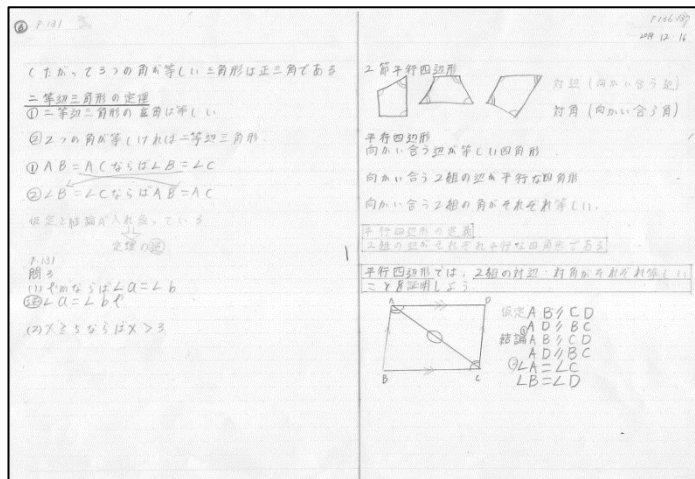 ⑥ P.131
したがって3つの角が等しい三角形は正三角である
二等辺三角形の定理
① 二等辺三角形の底角は等しい
② 2つの角が等しければ二等辺三角形.
① AB=ACならば∠B=∠C
② ∠B=∠CならばAB=AC
仮定と結論が入れ替っている
定理の逆
P.131
問3
ならば∠a=∠b
逆 ∠a=∠b
(2) x≧5ならばx>3
P136 137
2019 12 16
2節平行四辺形
対辺 (向かい合う辺)
対角 (向かい合う角)
平行四辺形
向かい合う辺が等しい四角形
向かい合う2組の辺が平行な四角形
向かい合う2組の角がそれぞれ等しい。
平行四辺形の定義
2組の辺がそれぞれ平行な四角形である
平行四辺形では、2組の対辺・対角がそれぞれ等しい
ことを証明しよう
A D
B C
仮定 AB∥CD
AD∥BC
結論 ① AB∥CD
AD∥BC
② ∠A=∠C
∠B=∠D